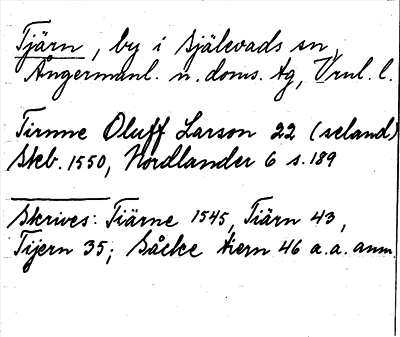 Tjärn, by i Själevads sn,
Ångermanl. n. doms. tg, Vrnl. l.
Tirnne Oluff Larson 22 (seland)
Skb. 1550, Nordlander 6 s. 189
Skrives: Tiärne 1545, Tiärn 43,
Tijern 35; Såcke tiern 46 a.a. anm.